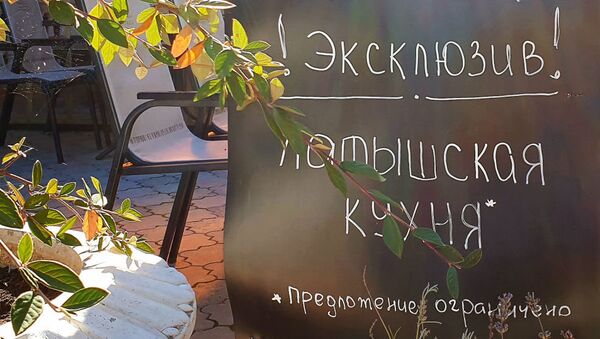 ! ЭКСКЛЮЗИВ!
ЛАТЫШСКАЯ
КУХНЯ*
*Предложение ограничено